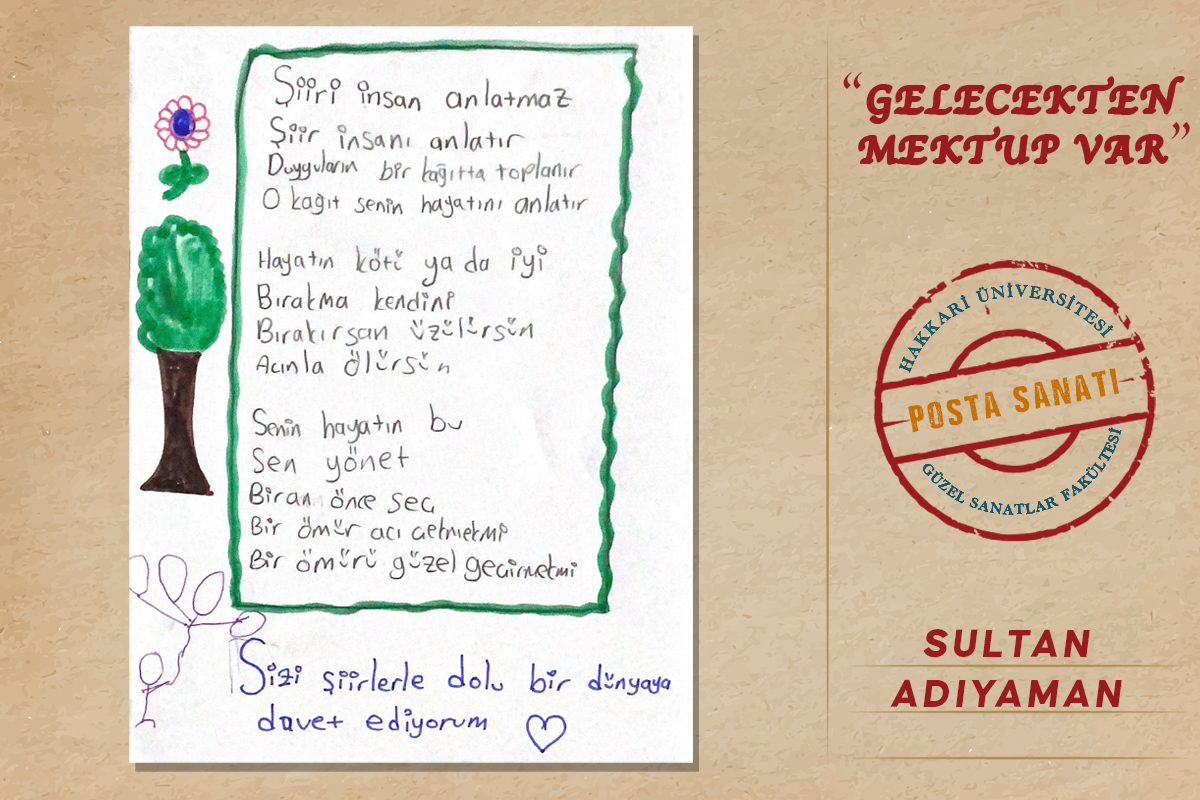 Şiiri insan anlatmaz
Şiir insanı anlatır
Duyguların bir kağıtta toplanır
O kağıt senin hayatını anlatır
Hayatın kötü ya da iyi
Bırakma kendini
Bırakırsan üzülürsün
Acınla ölürsün
Senin hayatın bu
Sen yönet
Biran önce seç
Bir ömür acı çetmetmi
Bir ömürü güzel geçirmetmi
Sizi şiirlerle dolu bir dünyaya
davet ediyorum
“GELECEKTEN
MEKTUP VAR”
HAKKARİ ÜNİVERSİTESİ
POSTA SANATI
GÜZEL SANATLAR FAKÜLTESİ
SULTAN
ADIYAMAN